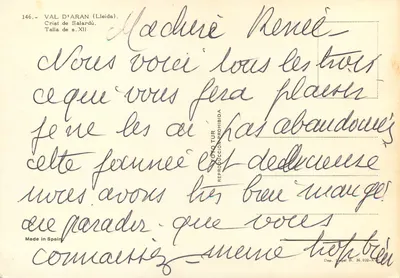 146.- VAL D'ARAN (Lleida)
Crist de Salardú.
Talla de s. XII
Ma chère Renée
Nous voici tous les trois
ce qui vous fera plaisir
je ne les ai pas abandonnés
cette journée est delicieuse
nous avons très bien mangé
au parador que vous
connaissez meme trop bien
FOTO TUR
REPRODUCCION PROHIBIDA
Made in Spain